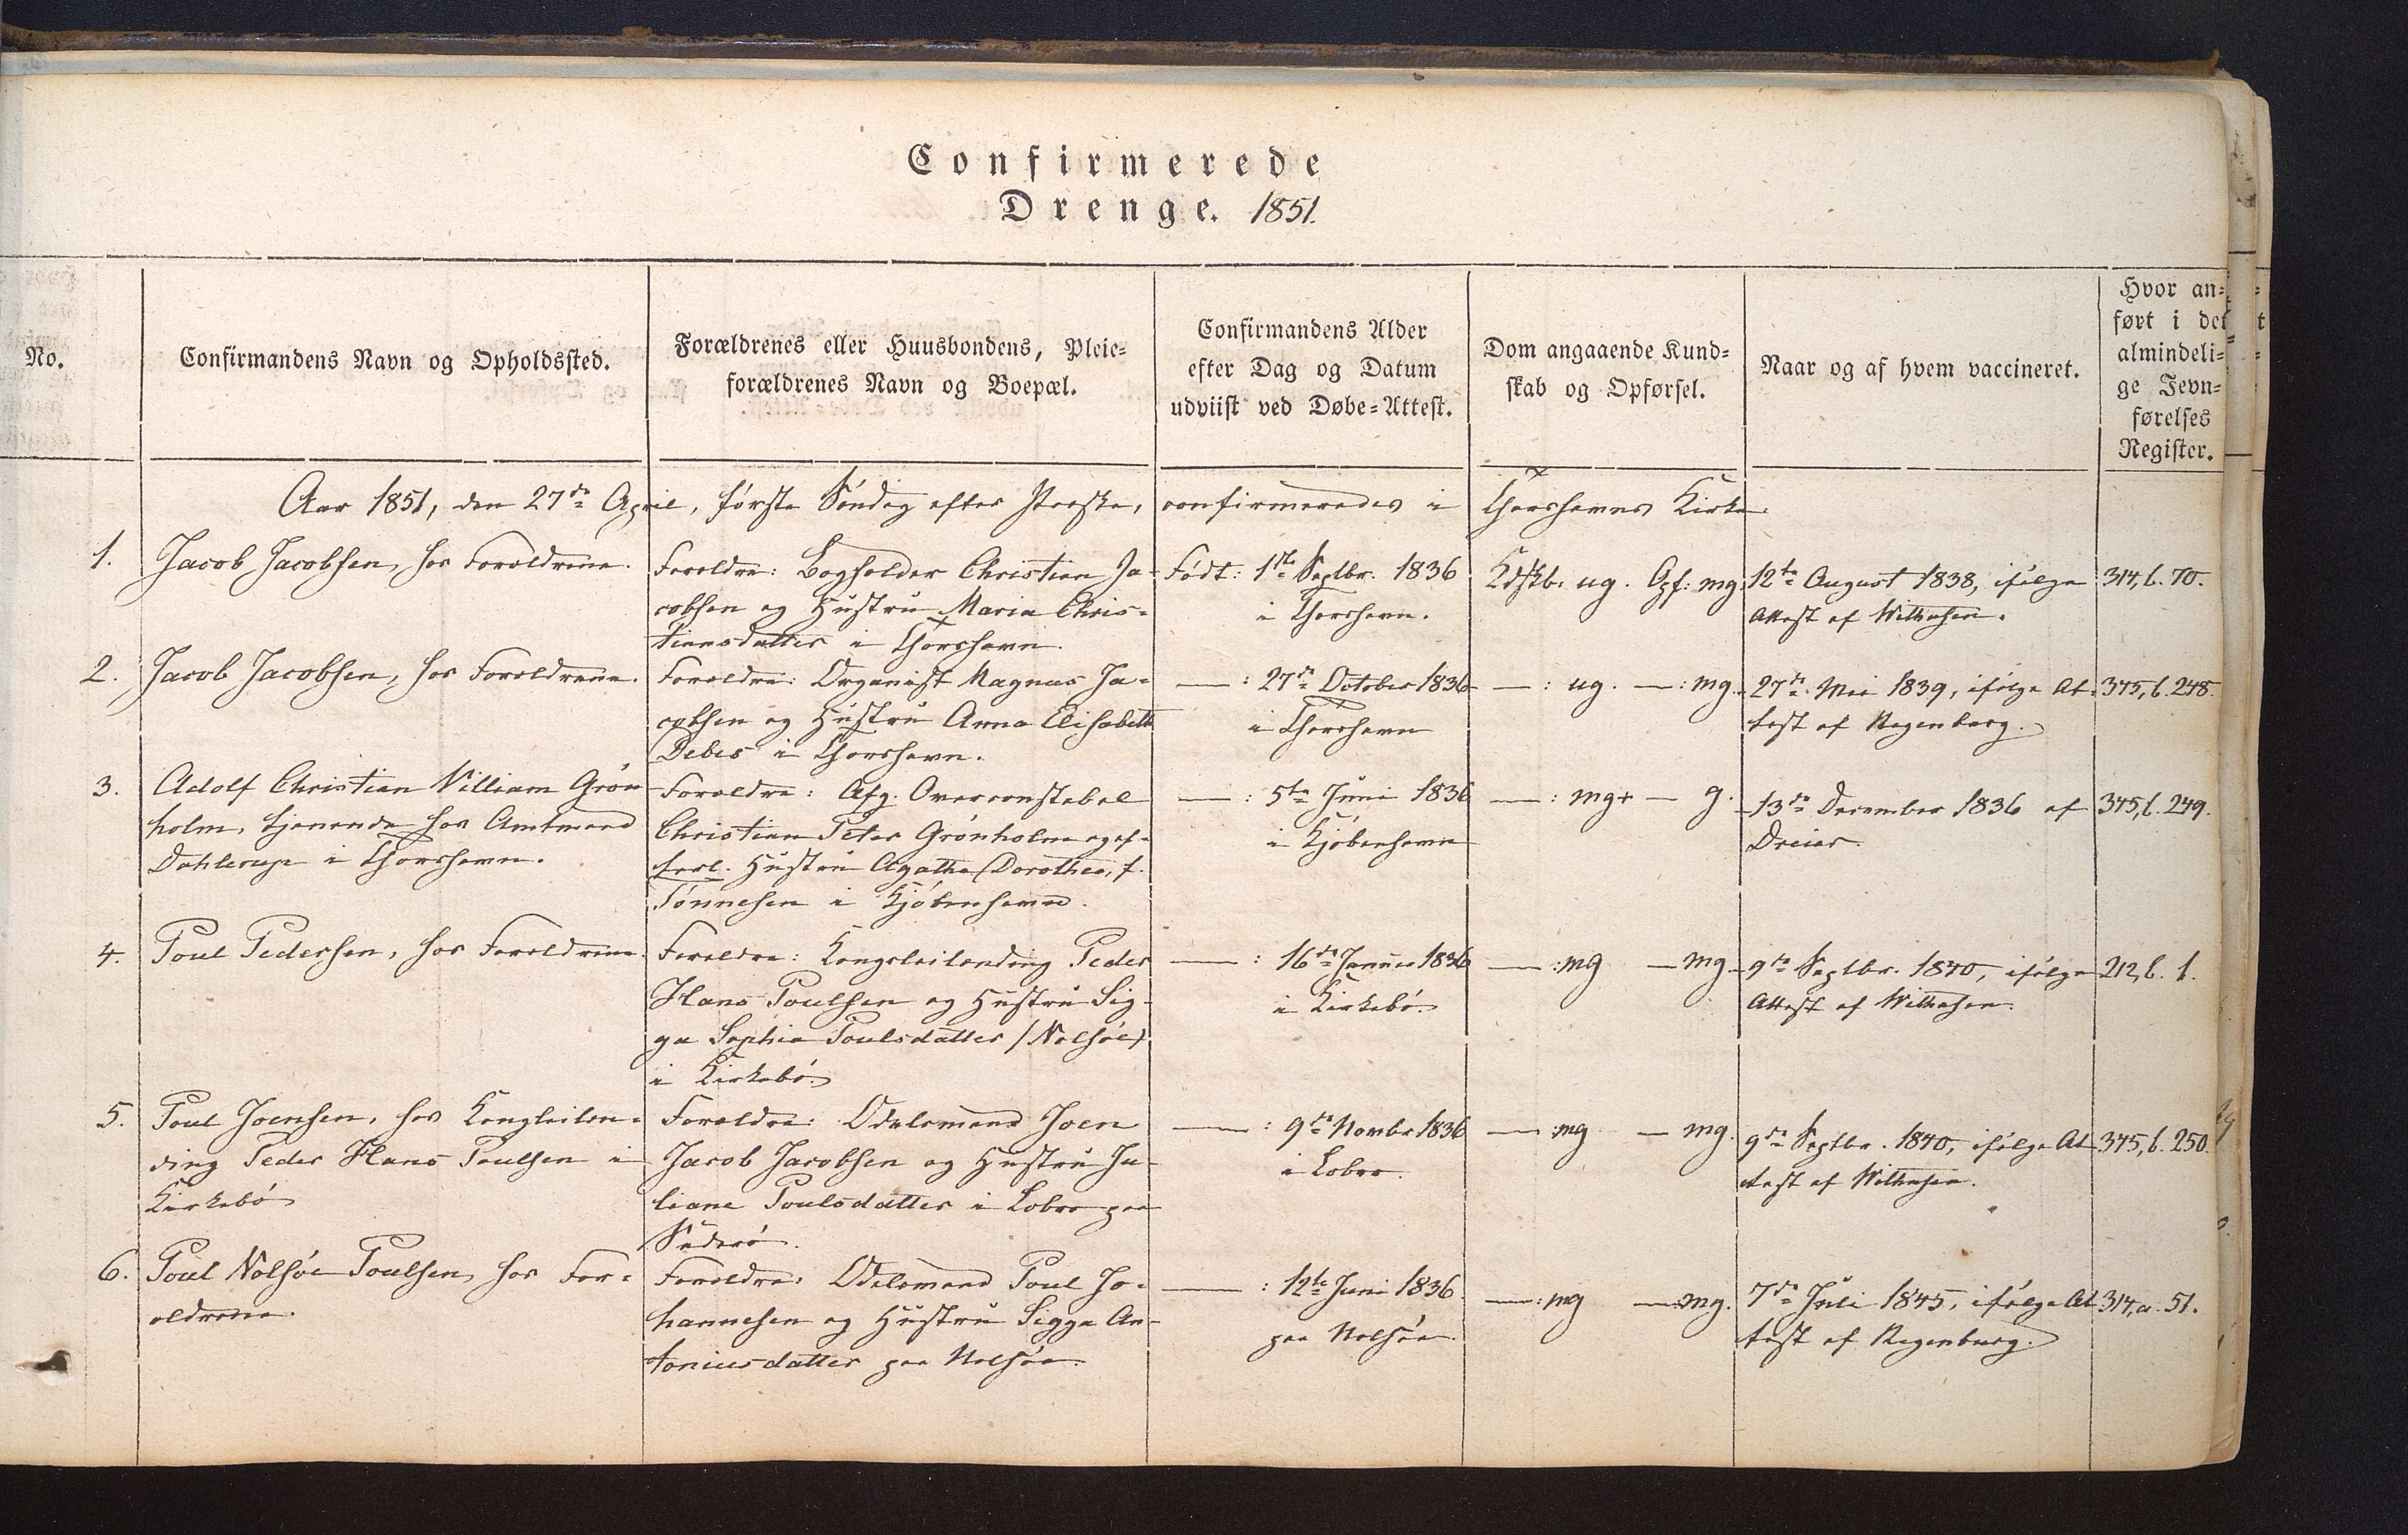 Confirmerede
Drenge. 1851.
No.
Confirmandens Navn og Opholdssted.
Forældrenes eller Huusbondens, Pleie=
forældrenes Navn og Boepæl.
Confirmandens Alder
efter Dag og Datum
udviist ved Døbe=Attest.
Dom angaaende Kund=
skab og Opførsel.
Naar og af hvem vaccineret.
Hvor an=
ført i det
almindeli=
ge Jevn=
førelses
Register.
Aar 1851, den 27de April, første Søndag efter Paaske, confirmeredes i Thorshavns Kirke.
1.
Jacob Jacobsen, hos Forældrene.
Forældre: Bogholder Christian Ja-
cobsen og Hustru Maria Chris-
tiansdatter i Thorshavn.
Født: 1ste Septbr. 1836
i Thorshavn.
Kdskb: ug. Opf: mg.
12te August 1838, ifølge
Attest af
314, b. 70.
2.
Jacob Jacobsen, hos Forældrene.
Forældre: Organist Magnus Ja-
cobsen og Hustru Anna Elisabeth
Debes i Thorshavn.
— : 27de October 1836
i Thorshavn
— : ug. — : mg.
27de Mai 1839, ifølge At-
test af Regenburg.
345, b. 248.
3.
Adolf Christian Villiam Grøn
holm, tjenende hos Amtmand
Dahlerup i Thorshavn.
Forældre: Afg. Overconstabel
Christian Peter Grønholm og ef-
terl. Hustru Agathe Dorothea, f.
Tønnesen i Kjøbenhavn.
— : 5te Juni 1836
i Kjøbenhavn
— : mg+ — g.
13de December 1836 af
Dreier.
345, b. 249.
4.
Poul Pedersen, hos Forældrene
Forældre: Kongsleilending Peder
Hans Poulsen og Hustru Sig-
ga Sophia Poulsdatter (Nolsøe)
i Kirkebø.
— : 16de Januar 1836
i Kirkebø.
— : mg — mg.
9de Septbr. 1840, ifølge
Attest af
212, b. 1.
5.
Poul Joensen, hos Kongsleilen-
ding Peder Hans Poulsen i
Kirkebø
Forældre: Odelsmand Joen
Jacob Jacobsen og Hustru Ju-
liane Poulsdatter i Lobro paa
Suderø.
— : 9de Novbr 1836
i Lobro.
— : mg — mg.
9de Septbr. 1840, ifølge At-
test af
345, b. 250.
6.
Poul Nolsøe Poulsen, hos For-
ældrene.
Forældre: Odelsmand Poul Jo-
hannesen og Hustru Sigga An-
toniusdatter paa Nolsøe.
— : 12te Juni 1836.
paa Nolsøe.
— : mg — mg.
7de Juli 1845, ifølge At-
test af Regenburg.
314, a. 51.